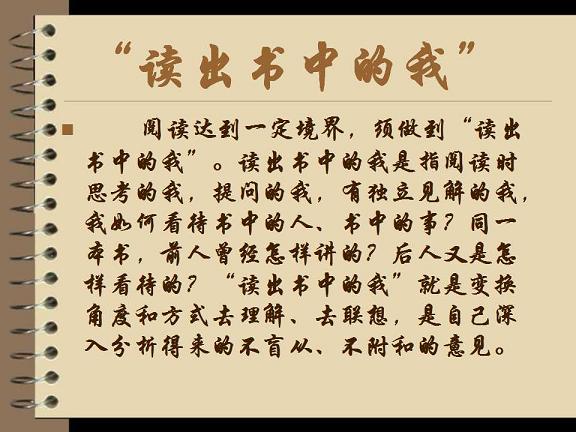 “读出书中的我”
阅读达到一定境界，须做到“读出
书中的我”。读出书中的我是指阅读时
思考的我，提问的我，有独立见解的我，
我如何看待书中的人、书中的事？同一
本书，前人曾经怎样讲的？后人又是怎
样看待的？“读出书中的我”就是变换
角度和方式去理解、去联想，是自己深
入分析得来的不盲从、不附和的意见。